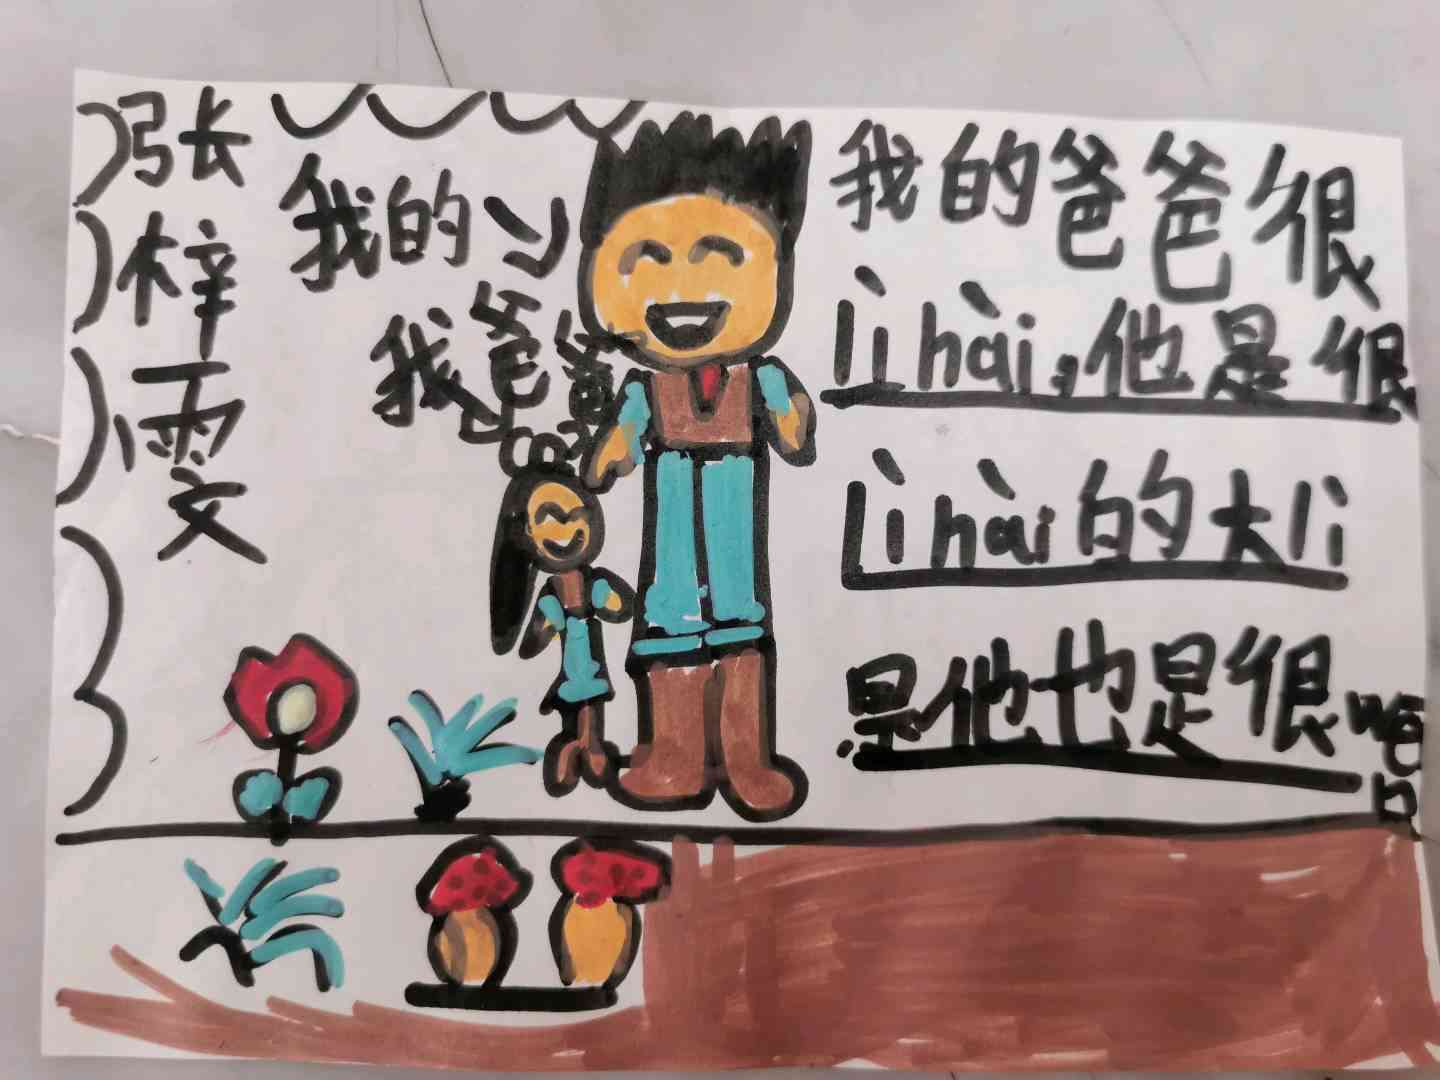 张梓雯
我的
我爸
我的爸爸很
lìhài,他是很
lìhài的大li
是他也是很